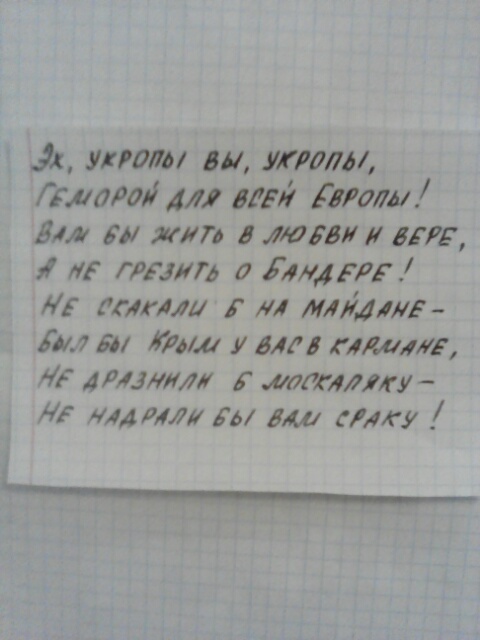 Эх, укропы вы, укропы,
Геморой для всей Европы!
Вам бы жить в любви и вере,
А не грезить о Бандере!
Не скакали б на майдане –
Был бы Крым у вас в кармане,
Не дразнили б москаляку –
Не надрали бы вам сраку!